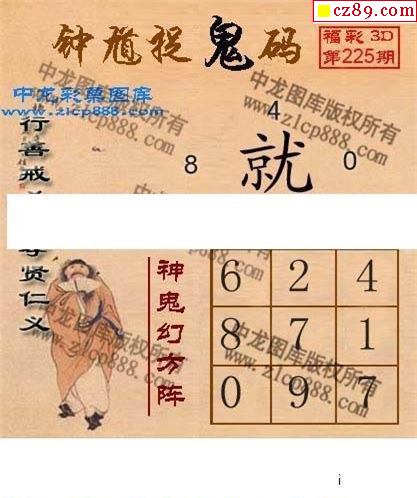 cz89.com
钟馗捉鬼码
福彩3D
第225期
中龙彩票图库
www.zlcp888.com
中龙图库版权所有
www.zlcp888.com
行善戒
贤仁义
4
8 就 0
神鬼幻方阵
6 2 4
8 7 1
0 9 7
中龙图库版权所有
www.zlcp888.com
i